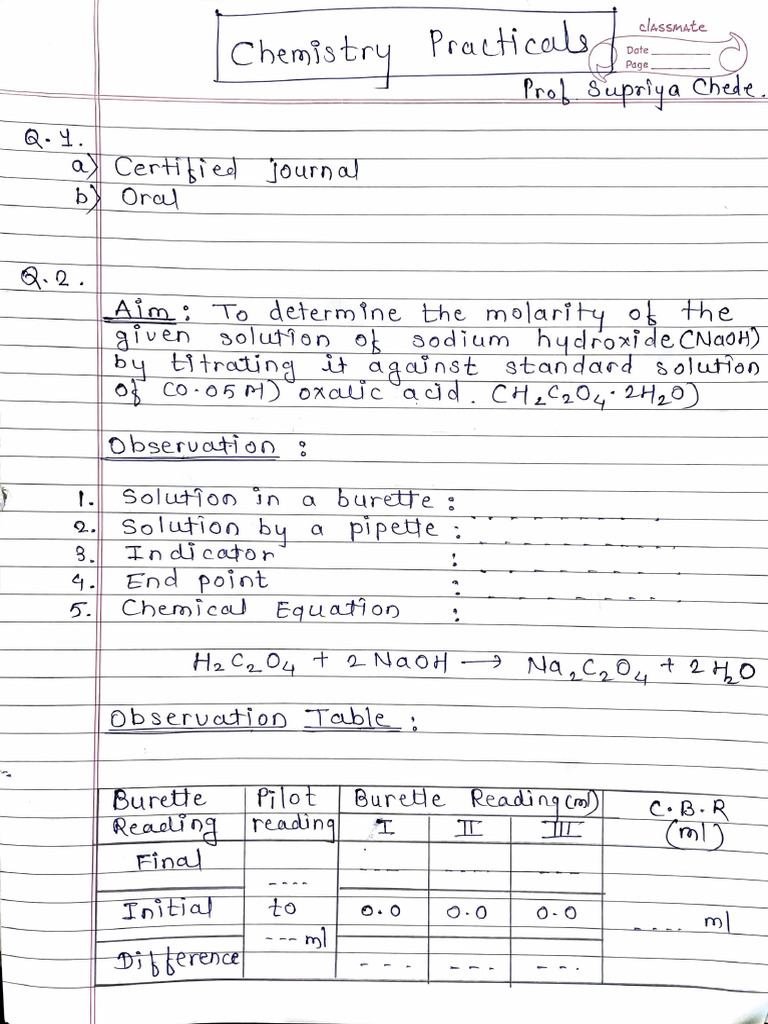 Chemistry Practicals
classmate
Date
Page
Prof. Supriya Chede.
Q.1.
a) Certified journal
b) Oral
Q.2.
Aim: To determine the molarity of the
given solution of sodium hydroxide (NaOH)
by titrating it against standard solution
of (0.05M) oxalic acid. (H₂C₂O₄·2H₂O)
Observation :
1. Solution in a burette :
2. Solution by a pipette :
3. Indicator :
4. End point :
5. Chemical Equation :
H₂C₂O₄ + 2NaOH → Na₂C₂O₄ + 2H₂O
Observation Table :
Burette Pilot Burette Reading (ml) C.B.R
Reading reading I II III (ml)
Final ---- --- --- ---
Initial to 0.0 0.0 0.0 ---- ml
--- ml
Difference --- --- ---